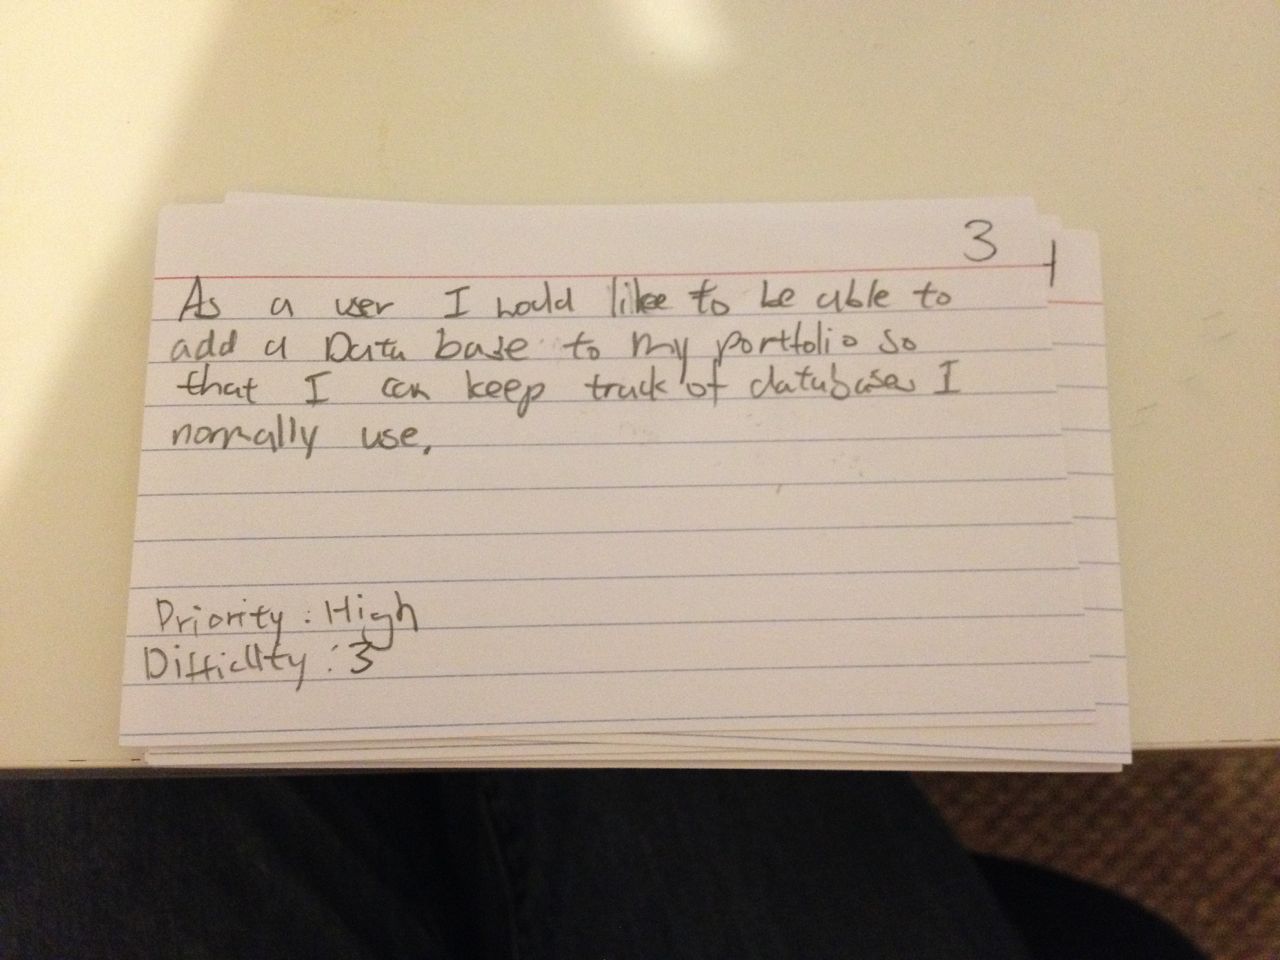 3
As a user I would like to be able to
add a Data base to my portfolio so
that I can keep track of databases I
normally use.
Priority : High
Difficlty : 3